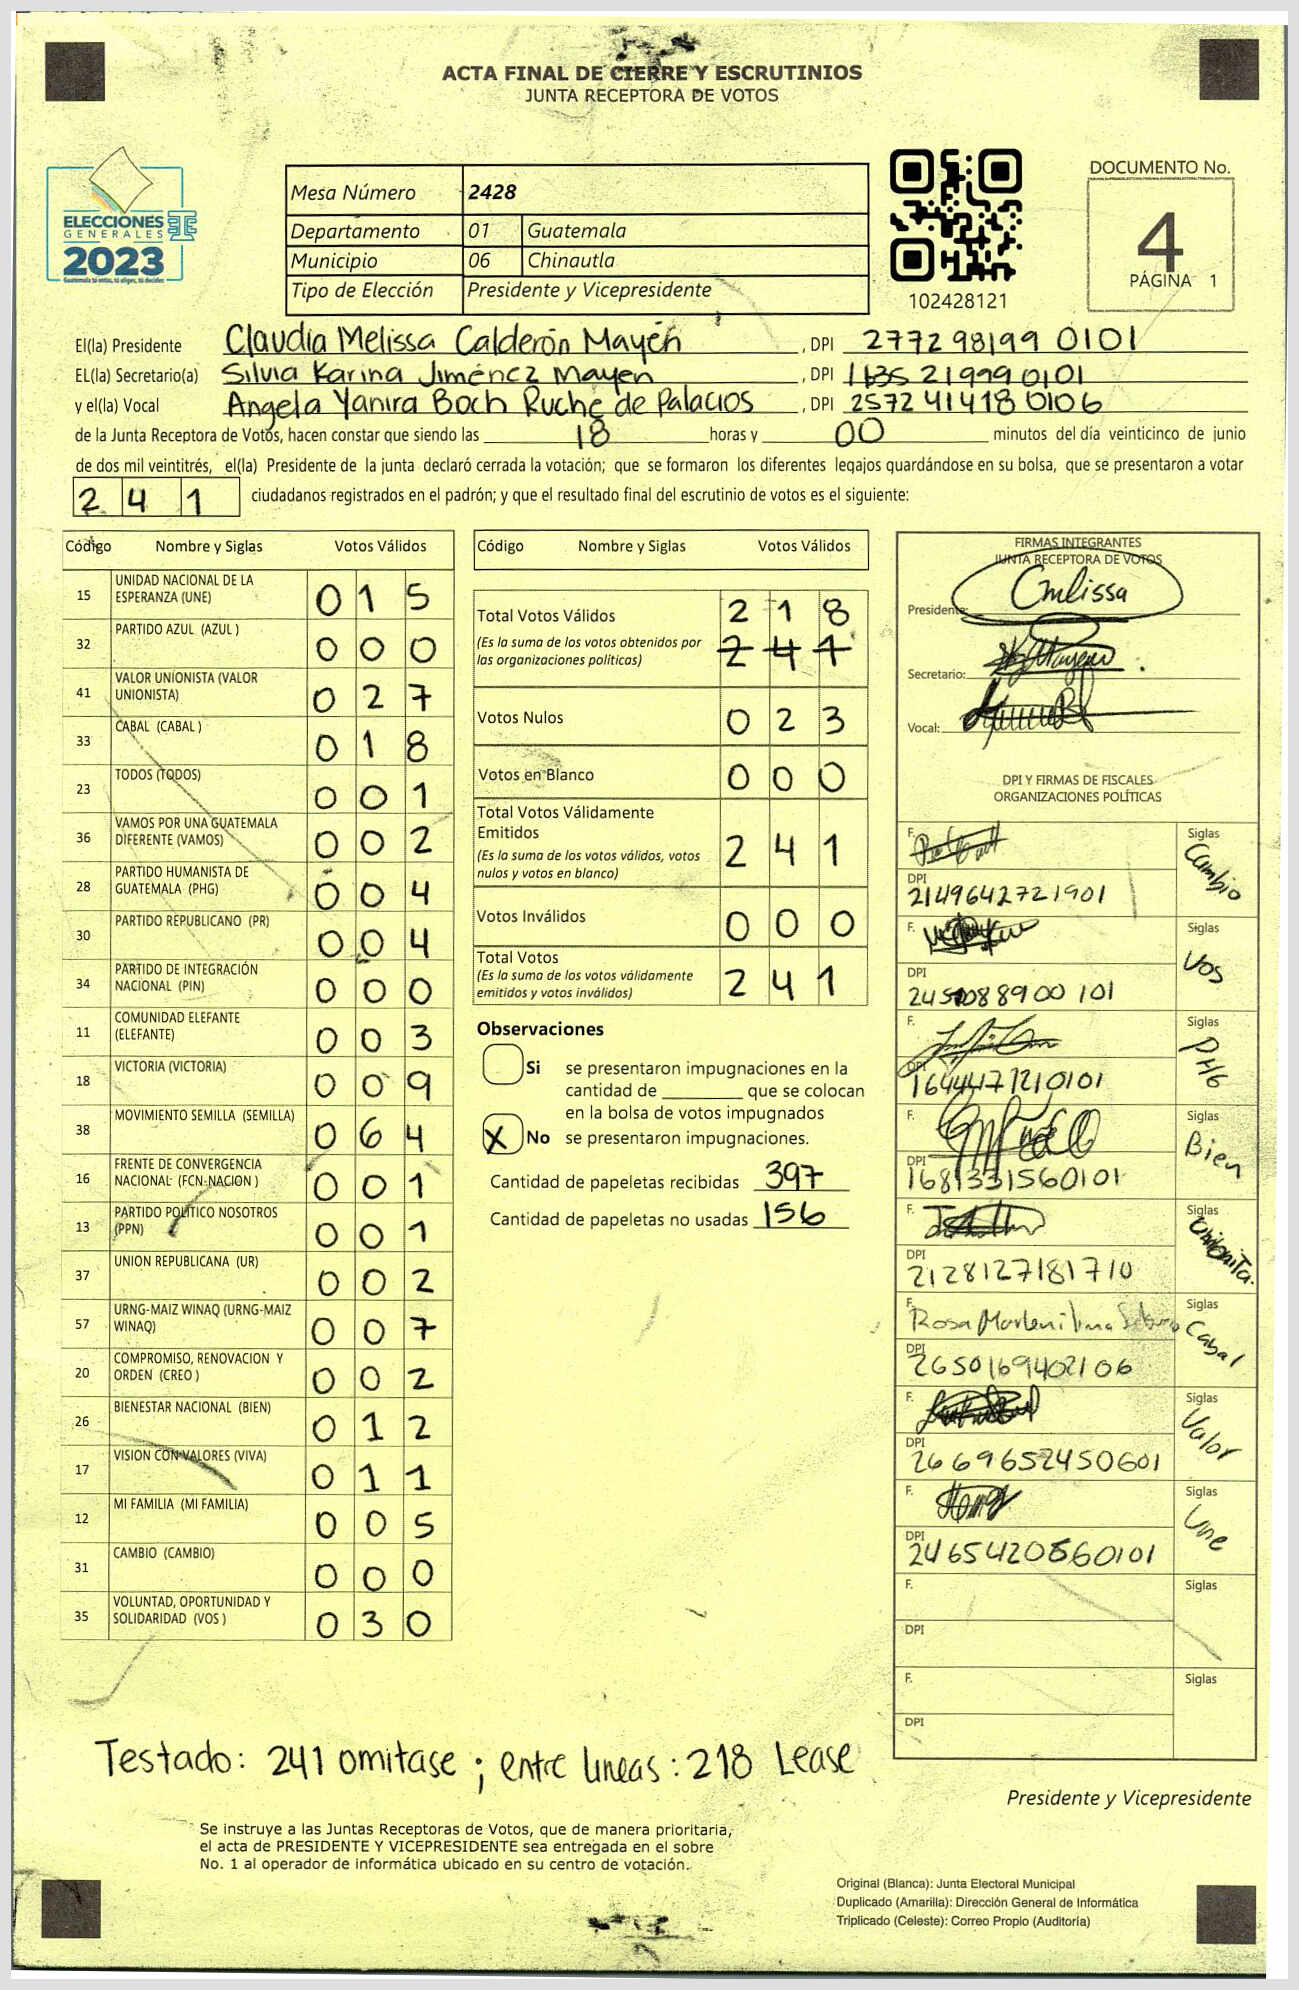 ACTA FINAL DE CIERRE Y ESCRUTINIOS
JUNTA RECEPTORA DE VOTOS
ELECCIONES
GENERALES
2023
Guatemala tú votas, tú eliges, tú decides
Mesa Número 2428
Departamento 01 Guatemala
Municipio 06 Chinautla
Tipo de Elección Presidente y Vicepresidente
102428121
DOCUMENTO No.
4
PÁGINA 1
El(la) Presidente Claudia Melissa Calderón Mayén , DPI 2772 98199 0101
EL(la) Secretario(a) Silvia Karina Jiménez Mayen , DPI 1635 21999 0101
y el(la) Vocal Angela Yanira Boch Ruche de Palacios , DPI 2572 41418 0106
de la Junta Receptora de Votos, hacen constar que siendo las 18 horas y 00 minutos del día veinticinco de junio
de dos mil veintitrés, el(la) Presidente de la junta declaró cerrada la votación; que se formaron los diferentes legajos guardándose en su bolsa, que se presentaron a votar
241 ciudadanos registrados en el padrón; y que el resultado final del escrutinio de votos es el siguiente:
Código Nombre y Siglas Votos Válidos
15 UNIDAD NACIONAL DE LA ESPERANZA (UNE) 0 1 5
32 PARTIDO AZUL (AZUL ) 0 0 0
41 VALOR UNIONISTA (VALOR UNIONISTA) 0 2 7
33 CABAL (CABAL ) 0 1 8
23 TODOS (TODOS) 0 0 1
36 VAMOS POR UNA GUATEMALA DIFERENTE (VAMOS) 0 0 2
28 PARTIDO HUMANISTA DE GUATEMALA (PHG) 0 0 4
30 PARTIDO REPUBLICANO (PR) 0 0 4
34 PARTIDO DE INTEGRACIÓN NACIONAL (PIN) 0 0 0
11 COMUNIDAD ELEFANTE (ELEFANTE) 0 0 3
18 VICTORIA (VICTORIA) 0 0 9
38 MOVIMIENTO SEMILLA (SEMILLA) 0 6 4
16 FRENTE DE CONVERGENCIA NACIONAL (FCN-NACION ) 0 0 1
13 PARTIDO POLÍTICO NOSOTROS (PPN) 0 0 1
37 UNION REPUBLICANA (UR) 0 0 2
57 URNG-MAIZ WINAQ (URNG-MAIZ WINAQ) 0 0 7
20 COMPROMISO, RENOVACION Y ORDEN (CREO ) 0 0 2
26 BIENESTAR NACIONAL (BIEN) 0 1 2
17 VISION CON VALORES (VIVA) 0 1 1
12 MI FAMILIA (MI FAMILIA) 0 0 5
31 CAMBIO (CAMBIO) 0 0 0
35 VOLUNTAD, OPORTUNIDAD Y SOLIDARIDAD (VOS ) 0 3 0
Código Nombre y Siglas Votos Válidos
Total Votos Válidos 2 1 8
(Es la suma de los votos obtenidos por las organizaciones políticas) 2 4 1
Votos Nulos 0 2 3
Votos en Blanco 0 0 0
Total Votos Válidamente Emitidos
(Es la suma de los votos válidos, votos nulos y votos en blanco) 2 4 1
Votos Inválidos 0 0 0
Total Votos
(Es la suma de los votos válidamente emitidos y votos inválidos) 2 4 1
Observaciones
Si se presentaron impugnaciones en la
cantidad de ________ que se colocan
en la bolsa de votos impugnados
X No se presentaron impugnaciones.
Cantidad de papeletas recibidas 397
Cantidad de papeletas no usadas 156
FIRMAS INTEGRANTES
JUNTA RECEPTORA DE VOTOS
Presidente: Cmlissa
Secretario:
Vocal:
DPI Y FIRMAS DE FISCALES
ORGANIZACIONES POLÍTICAS
F. Siglas Cambio
DPI 2149642721901
F. Siglas VOS
DPI
F. Siglas PHG
DPI 1644471210101
F. Siglas Bien
DPI 1681331560101
F. Siglas Unionista.
DPI 2128127181710
F. Rosa Siglas Cabal
DPI 2650169402106
F. Siglas Valor
DPI 2669652450601
F. Siglas Une
DPI 2465420860101
F. Siglas
DPI
F. Siglas
DPI
Testado: 241 omitase ; entre lineas : 218 Lease
Presidente y Vicepresidente
Se instruye a las Juntas Receptoras de Votos, que de manera prioritaria,
el acta de PRESIDENTE Y VICEPRESIDENTE sea entregada en el sobre
No. 1 al operador de informática ubicado en su centro de votación.
Original (Blanca): Junta Electoral Municipal
Duplicado (Amarilla): Dirección General de Informática
Triplicado (Celeste): Correo Propio (Auditoría)